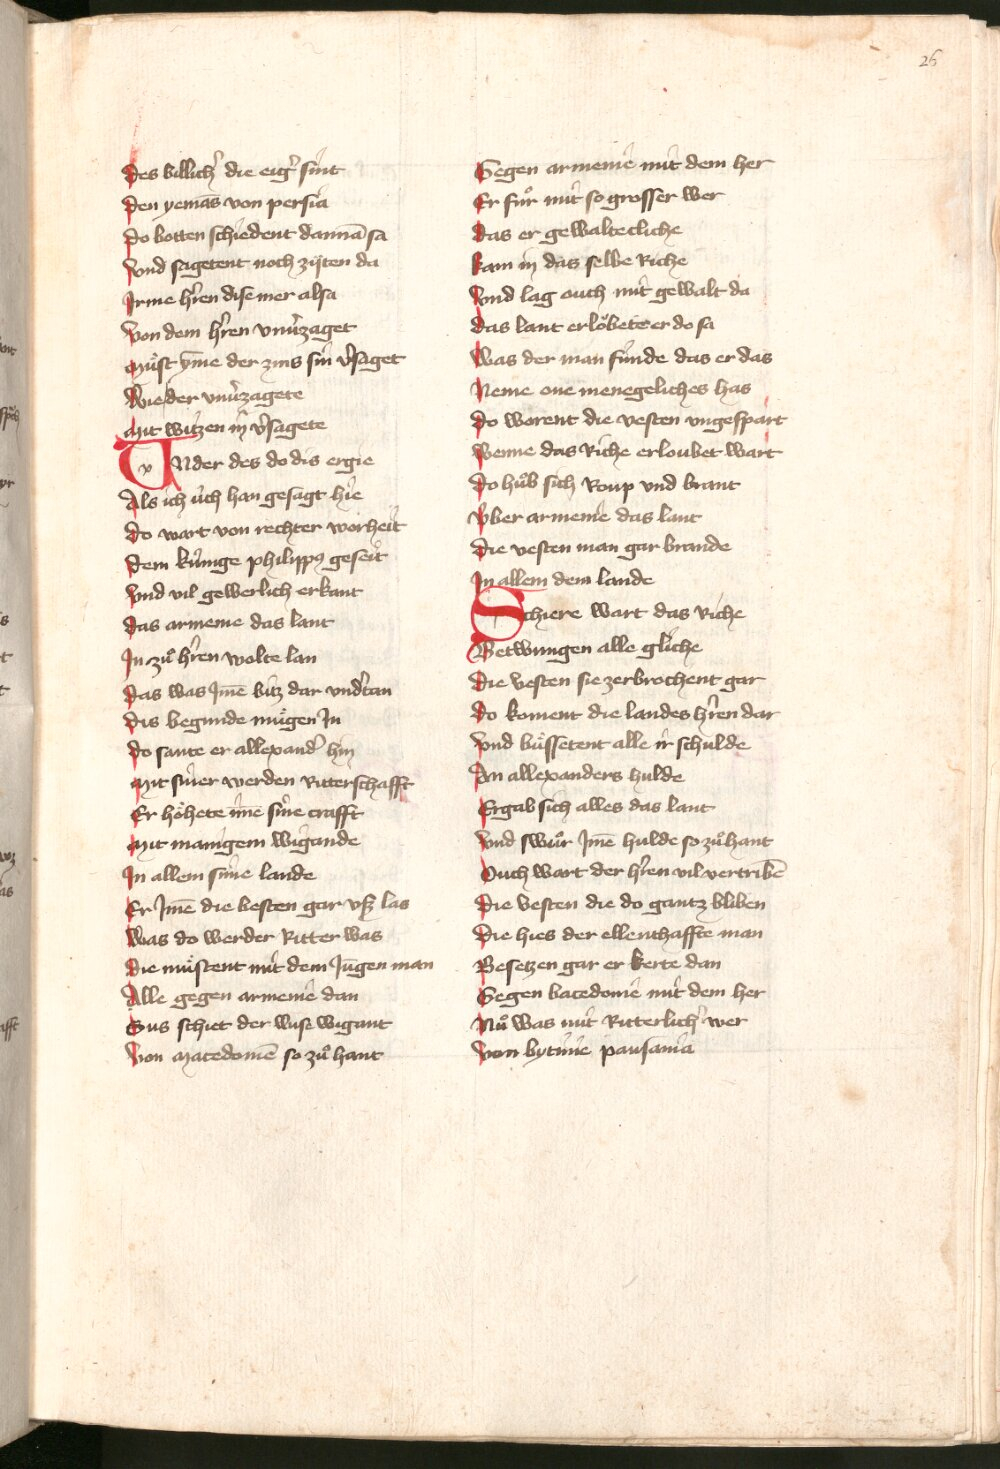 26
Des billichͬ die eigͬ sint
Den yemās von persia
Do botten schiedent dannā sa
Vnd sagetent noch zyten da
Irme hͬren dise mer alsa
Von dem hͬren vnuͬzaget
Muͤst yͫme der zins sin vͬsaget
Wie der vnuͬzagete
Mit witzen in vͬsagete
VNder des do dis ergie
Als ich uͤch han gesagt hie
Do wart von rechter worheit
Dem kuͤnige philippꝰ geseit
Vnd vil gewerlich erkant
Das armenie das lant
In zuͦ hͬren wolte lan
Das was Jmē bitz dar vndͬtan
Dis begunde muͤgen In
Do sante er allexandͬ hin
Mit siner werden Ritterschafft
Er hoͤhete imē sine crafft
Mit manigem wigande
In allem sime lande
Er Jmē die besten gar vsz las
Was do werder Ritter was
Die muͤstent mit dem Jūgen man
Alle gegen armenie dan
Sus schiet der wise wigant
Von Macedoniē so zuͦ hant
Gegen armenie mit dem her
Er fuͦr mit so grosser wer
Das er gewaltecliche
Kam in das selbe Riche
Vnd lag ouch mit gewalt da
Das lant erloͤbete er do sa
Was der man funde das er das
Neme one menegeliches has
Do worent die vesten vngespart
Wenne das Riche erloubet wart
Do huͦb sich Roup vnd brant
Vͤber armenie das lant
Die vesten man gar brande
In allem dem lande
Schiere wart das Riche
Betwungen alle gliche
Die vesten sie zerbrochent gar
Do koment die landes hͬren dar
Vnd buͤssetent alle ir schulde
An allexanders hulde
Ergab sich alles das lant
Vnd swuͦr Jmē hulde so zuͦ hant
Ouch wart der hͬren vil vertribē
Die vesten die do gantz bliben
Die hies der ellenthaffte man
Besetzen gar er kerte dan
Gegen bacedonie mit dem her
Nuͦ was mit Ritterlichͬ wer
Von bytinie pausania